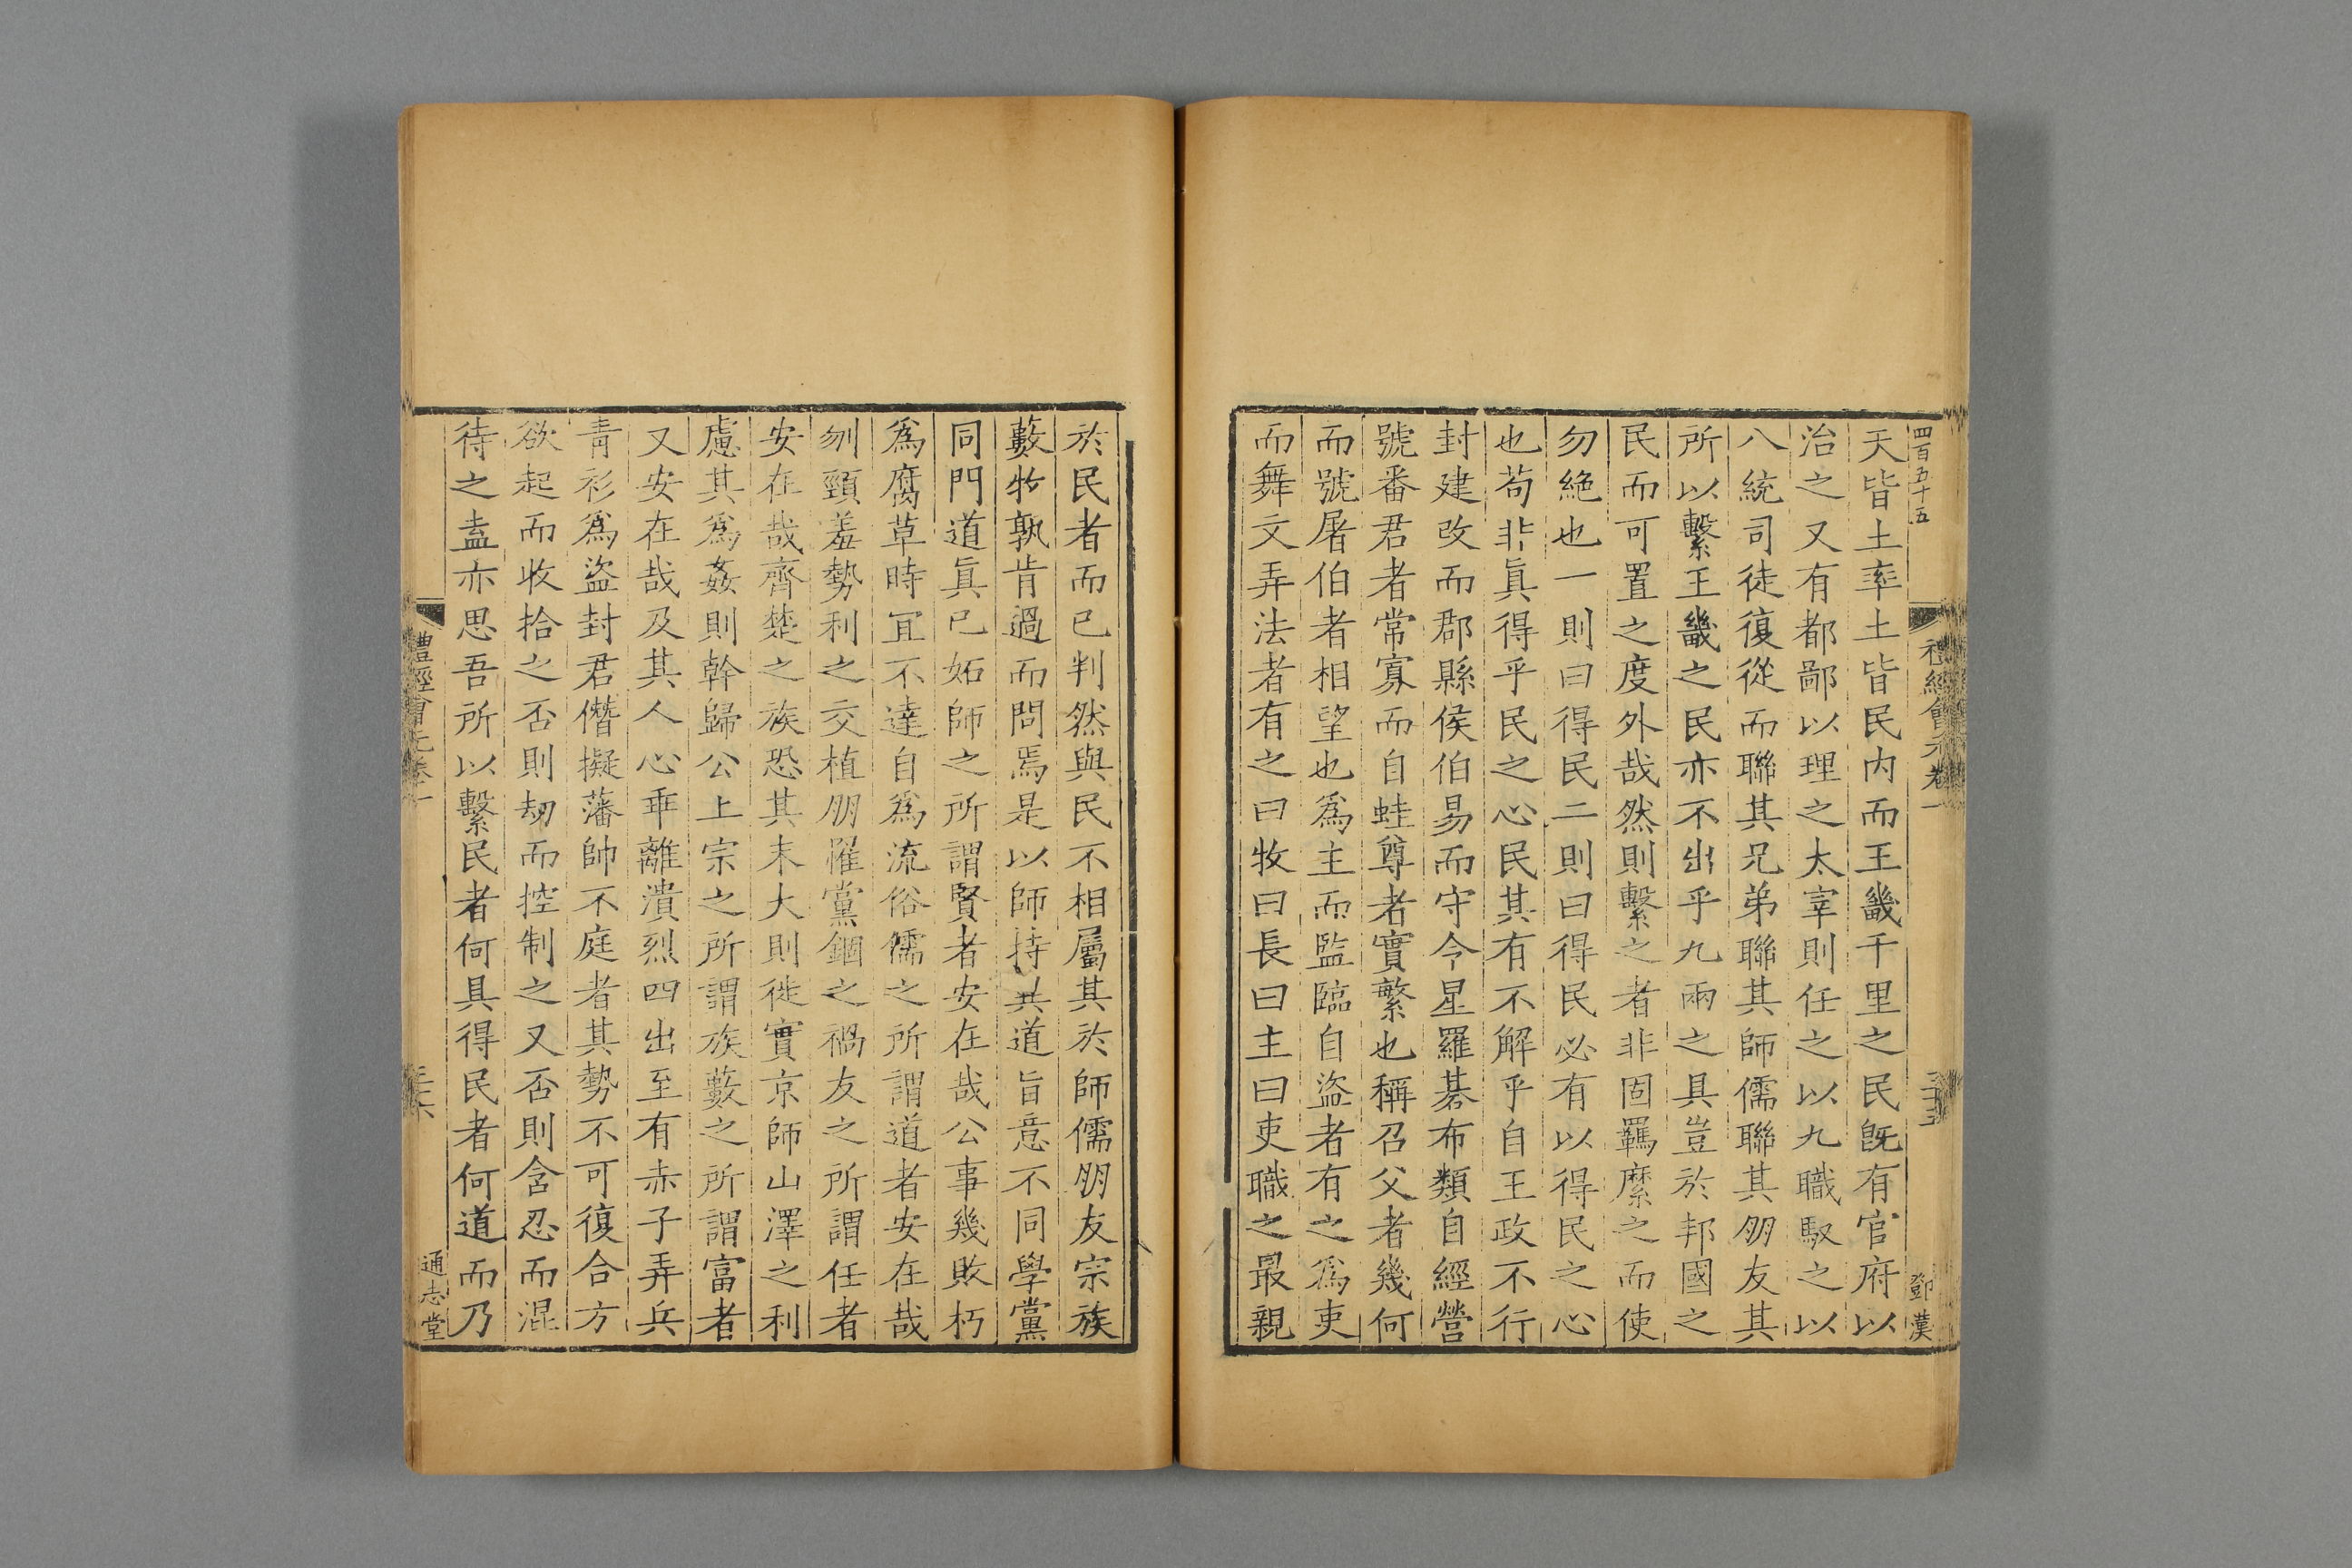 四百五十五
禮經會元卷一
三十五
鄧漢
天皆土率土皆民内而王畿千里之民旣有官府以
治之又有都鄙以理之太宰則任之以九職馭之以
八統司徒復從而聯其兄弟聯其師儒聯其朋友其
所以繫王畿之民亦不出乎九兩之具豈於邦國之
民而可置之度外哉然則繫之者非固羈縻之而使
勿絶也一則曰得民二則曰得民必有以得民之心
也苟非眞得乎民之心民其有不解乎自王政不行
封建改而郡縣侯伯易而守令星羅碁布類自經營
號番君者常寡而自蛙尊者實繁也稱召父者幾何
而號屠伯者相望也爲主而監臨自盜者有之爲吏
而舞文弄法者有之曰牧曰長曰主曰吏職之最親
於民者而已判然與民不相屬其於師儒朋友宗族
藪牧孰肯過而問焉是以師持其道旨意不同學黨
同門道眞已妬師之所謂賢者安在哉公事幾敗朽
爲腐草時宜不達自爲流俗儒之所謂道者安在哉
刎頸羞勢利之交植朋懼黨錮之禍友之所謂任者
安在哉齊楚之族恐其末大則徙實京師山澤之利
慮其爲姦則幹歸公上宗之所謂族藪之所謂富者
又安在哉及其人心乖離潰烈四出至有赤子弄兵
靑衫爲盜封君僭擬藩帥不庭者其勢不可復合方
欲起而收拾之否則刼而控制之又否則含忍而混
待之盍亦思吾所以繫民者何具得民者何道而乃
禮經會元卷一
三十六
通志堂